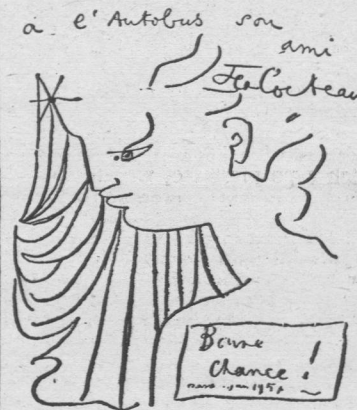 à l'Autobus son
ami
Jean Cocteau
Bonne
chance !